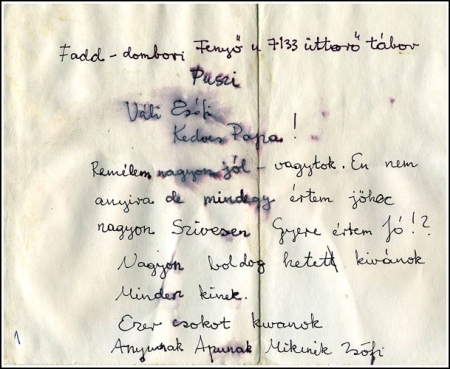 Fadd - dombori Fenyő u 7133 úttorő tábor
Puszi
Váli Zsófi
Kedves Papa !
Remélem nagyon jól - vagytok. En nem
anyira de mindegy értem jöhec
nagyon Szivesen Gyere értem Jó!?
Nagyon boldog hetett kivánok
Minden kinek.
Ezer csokot kivanok
Anyunak Apunak Mikinek Zsófi
1